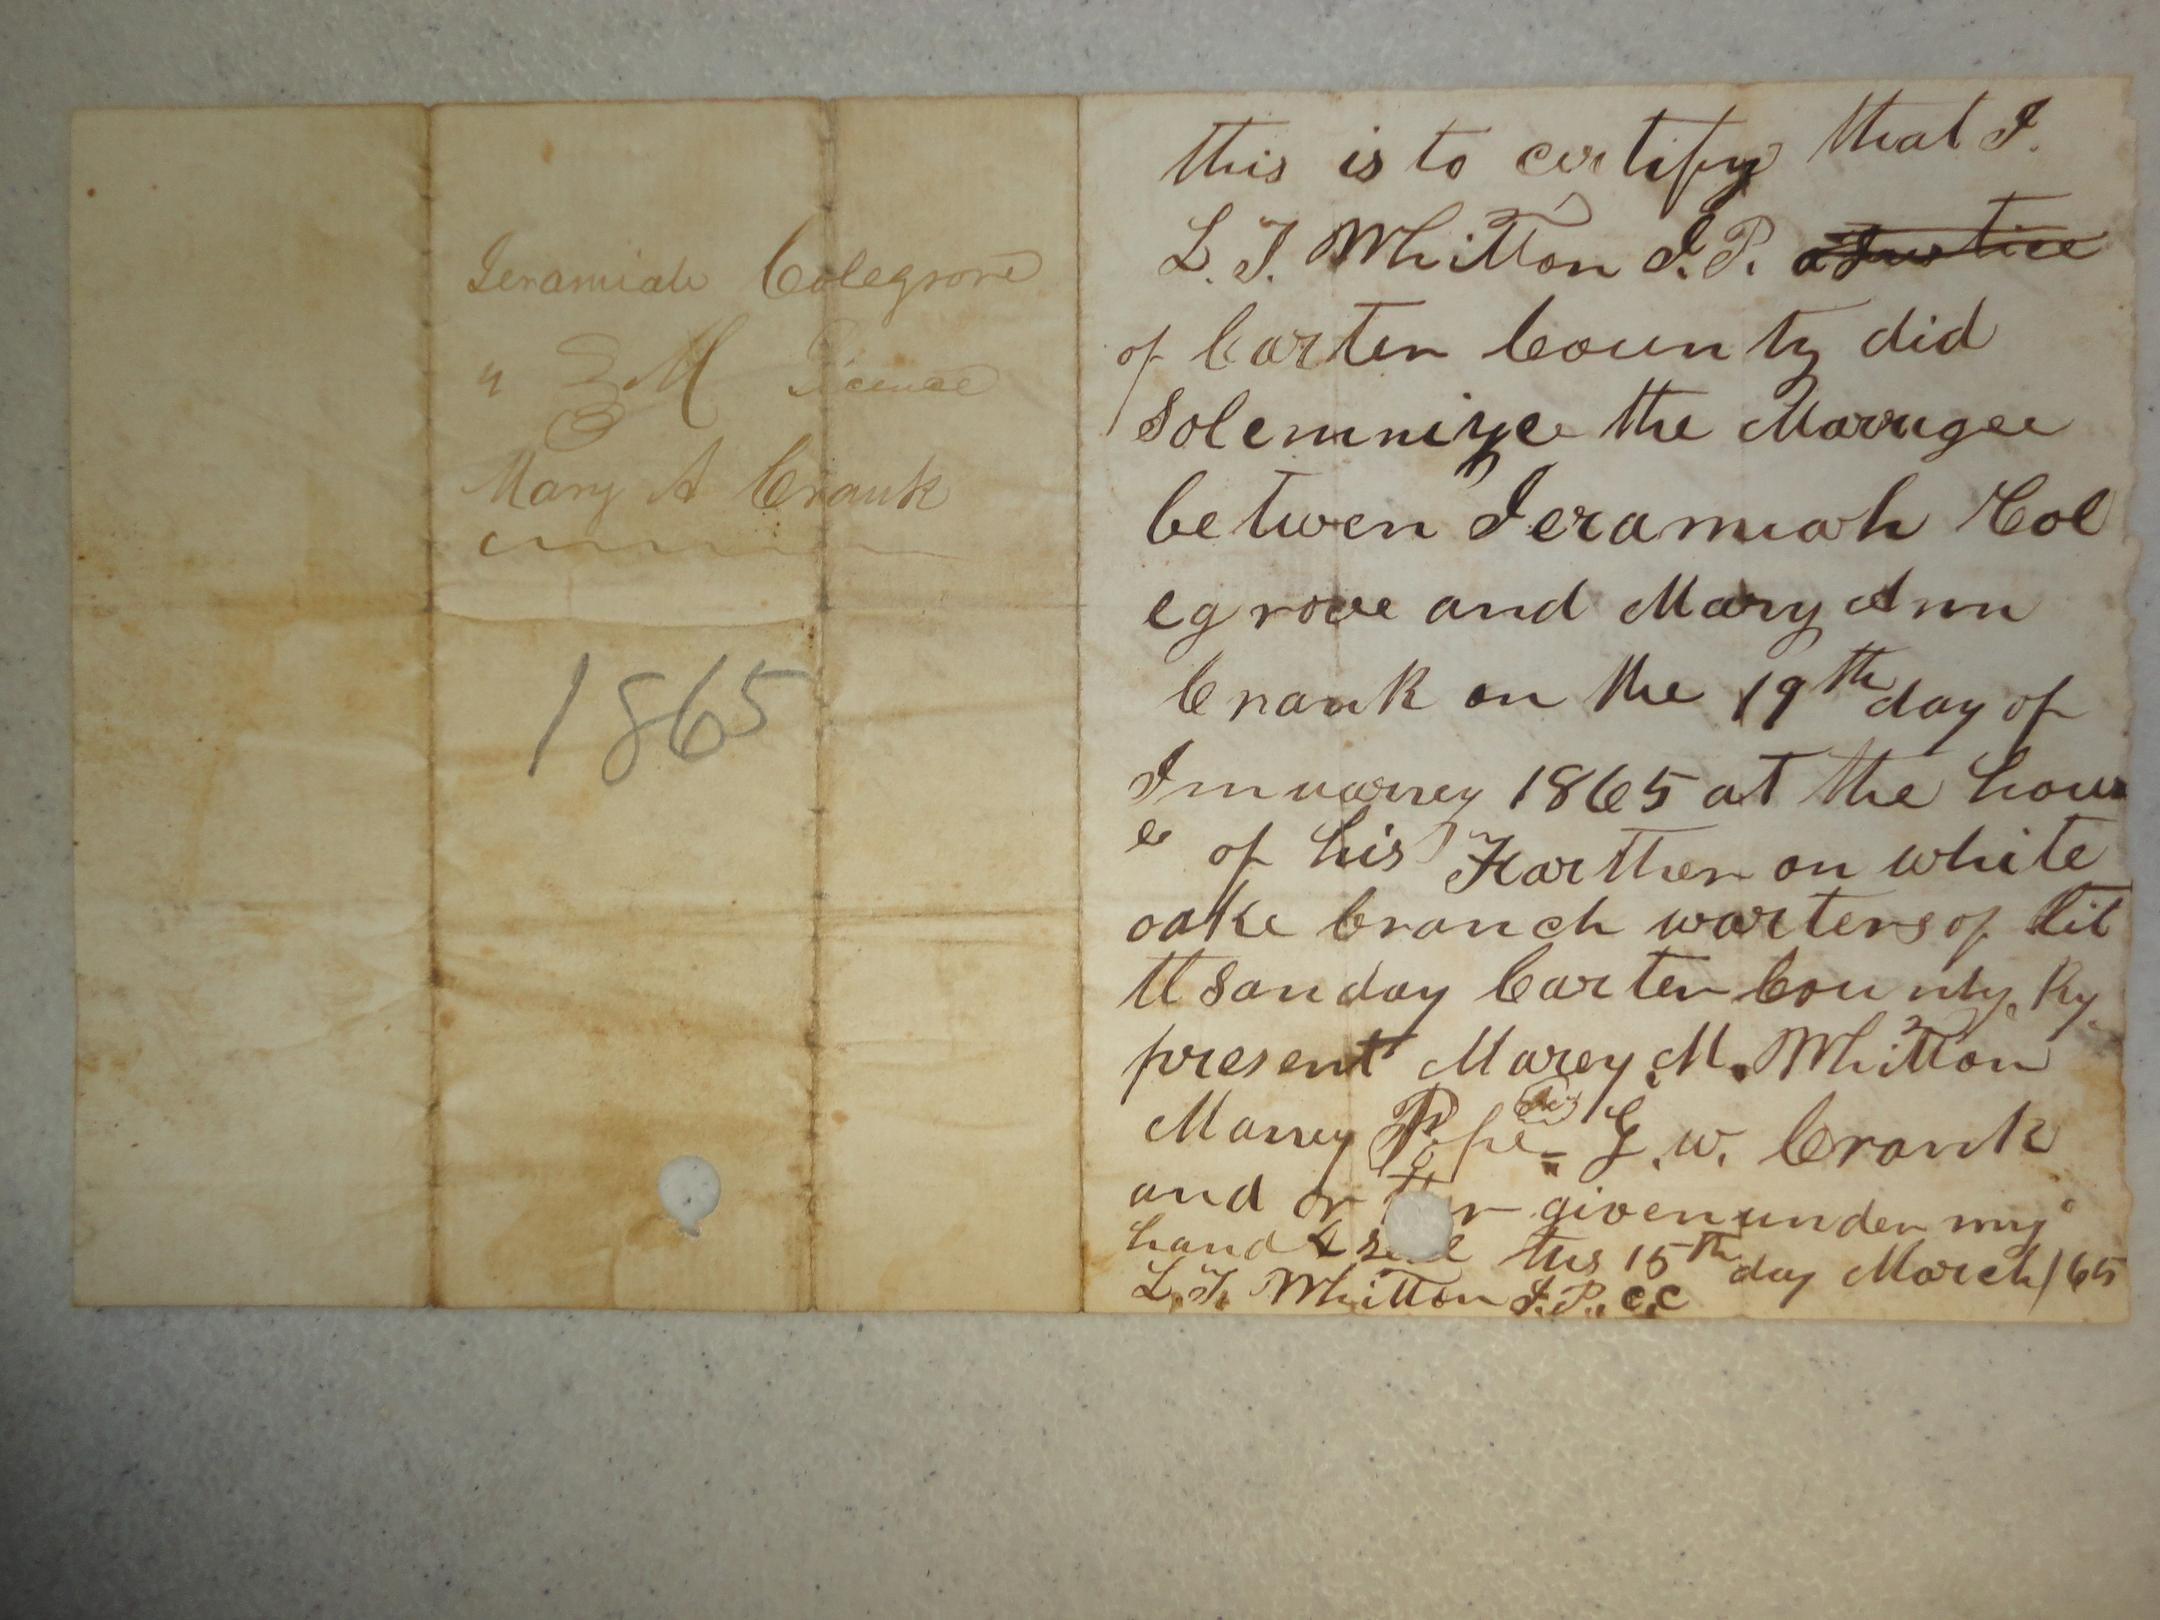 Jeramiah Colegrove
" } M License
Mary A Crank
1865
this is to certify that I.
L. T. Whitton J. P. a Justice
of Carter County did
Solemnize the Marrigee
betwen Jeramiah Col
egrove and Mary Ann
Crank on the 19th day of
Jnuarey 1865 at the hous
e of his Farther on white
oake branch warters of Lit
tl sanday Carter County. Ky.
present Marey. M. Whitton
Marey Pope = G. W. Crank
and given under my
hand & this 15th day March /65
L. T. Whitton J. P. C.C